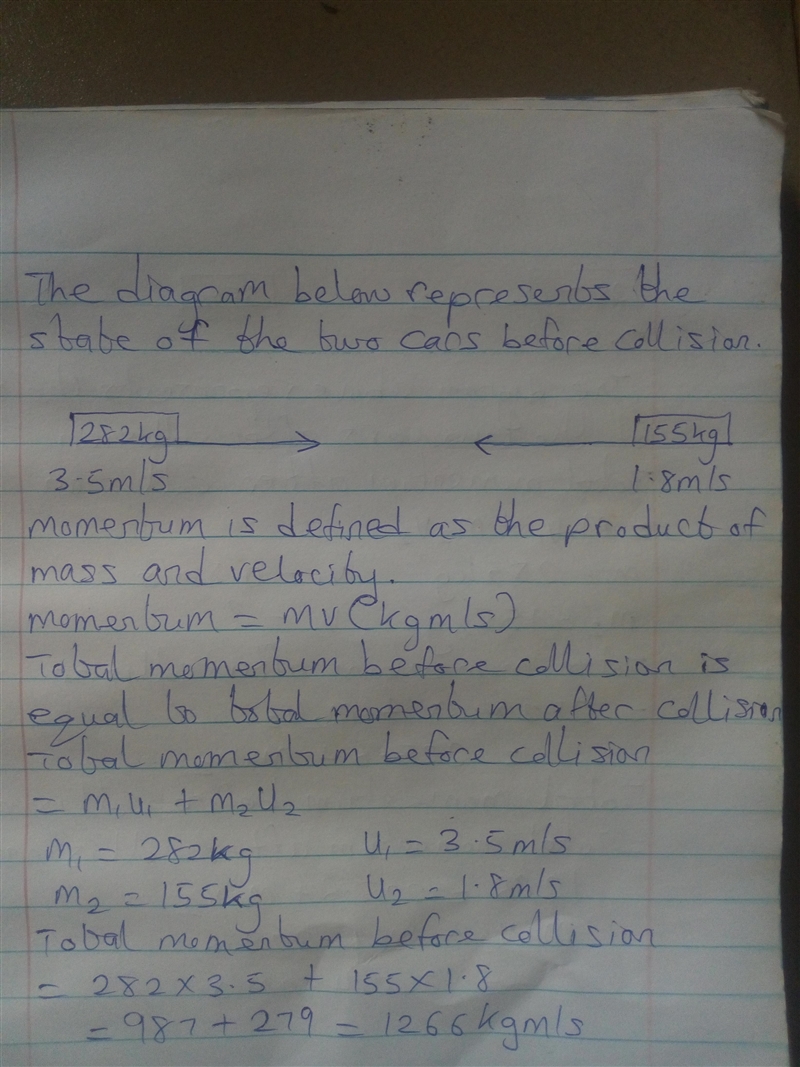 The diagram below represents the
state of the two cars before collision.
282kg 155kg
3.5m/s 1.8m/s
momentum is defined as the product of
mass and velocity.
momentum = mv (kgm/s)
Total momentum before collision is
equal to total momentum after collision
Total momentum before collision
= m₁u₁ + m₂u₂
m₁ = 282kg u₁ = 3.5m/s
m₂ = 155kg u₂ = 1.8m/s
Total momentum before collision
= 282 × 3.5 + 155 × 1.8
= 987 + 279 = 1266kgm/s